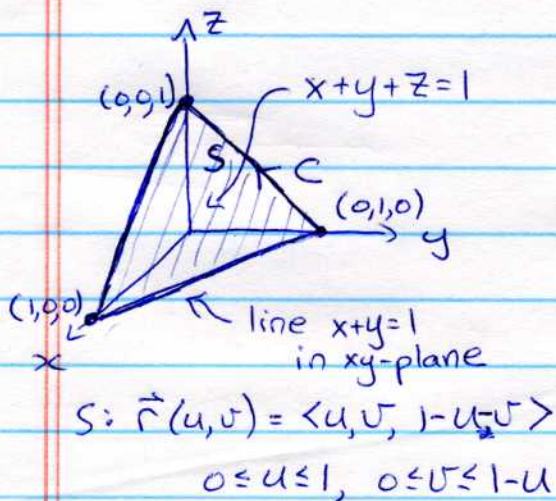 z
(0,0,1)
x+y+z=1
S
C
(0,1,0)
y
(1,0,0)
x
line x+y=1
in xy-plane
S: r⃗(u,v) = <u,v, 1-u-v>
0≤u≤1, 0≤v≤1-u